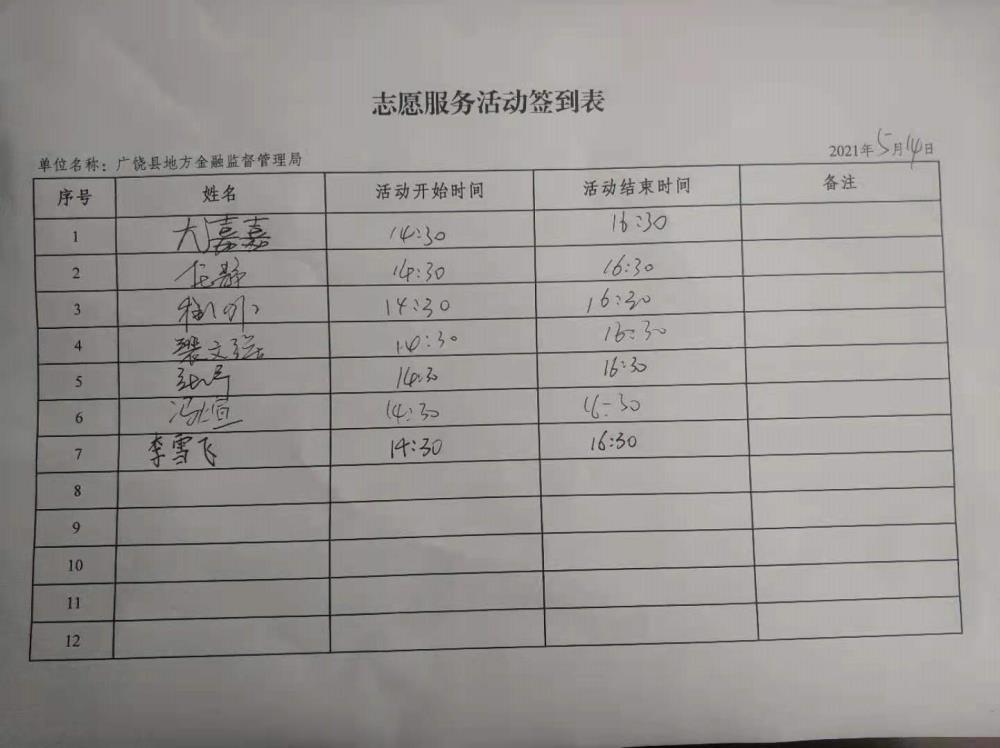 志愿服务活动签到表
单位名称：广饶县地方金融监督管理局 2021年5月14日
序号 姓名 活动开始时间 活动结束时间 备注
1 嘉嘉 14:30 16:30
2 任静 14:30 16:30
3 14:30 16:30
4 文强 14:30 16:30
5 14:30 16:30
6 冯恒 14:30 16:30
7 李雪飞 14:30 16:30
8
9
10
11
12